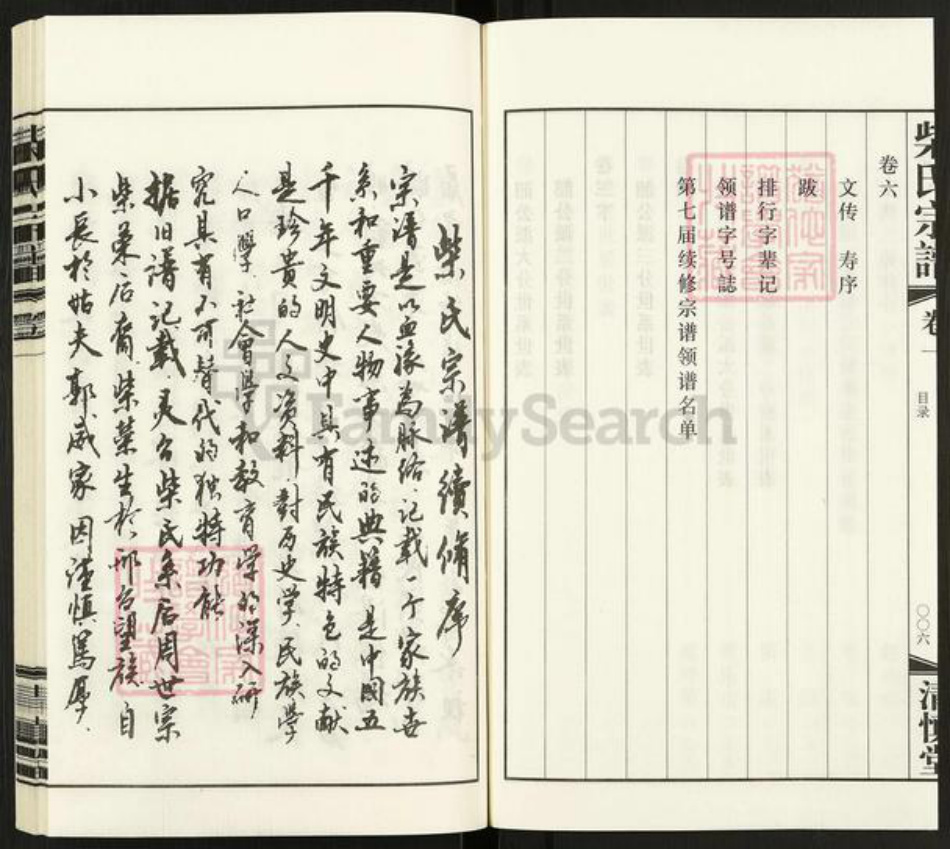 柴氏宗譜
卷一
目录
〇〇六
清慎堂
卷六
文传 寿序
跋
排行字辈记
领谱字号誌
第七届续修宗谱领谱名单
柴氏宗谱續修序
宗谱是以血缘为脉络、记载一个家族世
系和重要人物事迹的典籍 是中國五
千年文明史中具有民族特色的文献
是珍贵的人文资料、對历史学、民族学
人口學、社會學和教育学的深入研
究具有不可替代的独特功能
据旧譜记載、灵台柴氏系后周世宗
柴荣后裔、柴荣生於邢台望族、自
小長於姑夫郭威家 因谨慎篤厚、
FamilySearch